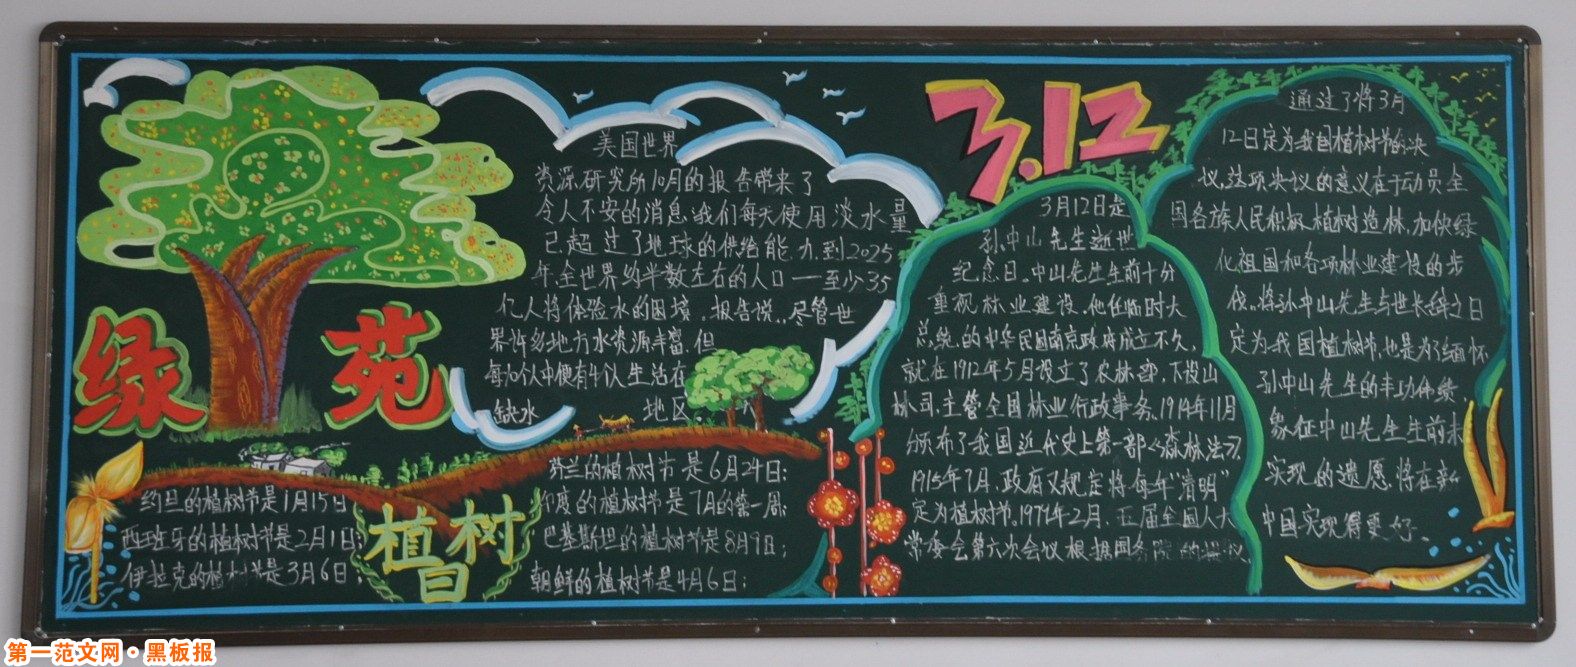 绿苑
美国世界
资源研究所10月的报告带来了
令人不安的消息,我们每天使用淡水量
已超过了地球的供给能力到2025
年,全世界约半数左右的人口——至少35
亿人将体验水的困境.报告说,尽管世
界许多地方水资源丰富.但
每10个人中便有4个人生活在
缺水 地区
约旦的植树节是1月15日
西班牙的植树节是2月1日;
伊拉克的植树节是3月6日;
植树日
芬兰的植树节是6月24日;
印度的植树节是7月的第一周;
巴基斯坦的植树节是8月9日;
朝鲜的植树节是4月6日;
3.12
3月12日是
孙中山先生逝世
纪念日.中山先生生前十分
重视林业建设.他任临时大
总统的中华民国南京政府成立不久,
就在1912年5月设立了农林部,下设山
林司,主管全国林业行政事务.1914年11月
颁布了我国近代史上第一部《森林法》.
1915年7月,政府又规定将每年"清明"
定为植树节.1979年2月,五届全国人大
常委会第六次会议根据国务院的提议
通过了将3月
12日定为我国植树节的决
议,这项决议的意义在于动员全
国各族人民积极植树造林,加快绿
化祖国和各项林业建设的步
伐.将孙中山先生与世长辞之日
定为我国植树节,也是为了缅怀
孙中山先生的丰功伟绩,
象征中山先生生前未
实现的遗愿将在新
中国实现得更好.
第一范文网·黑板报